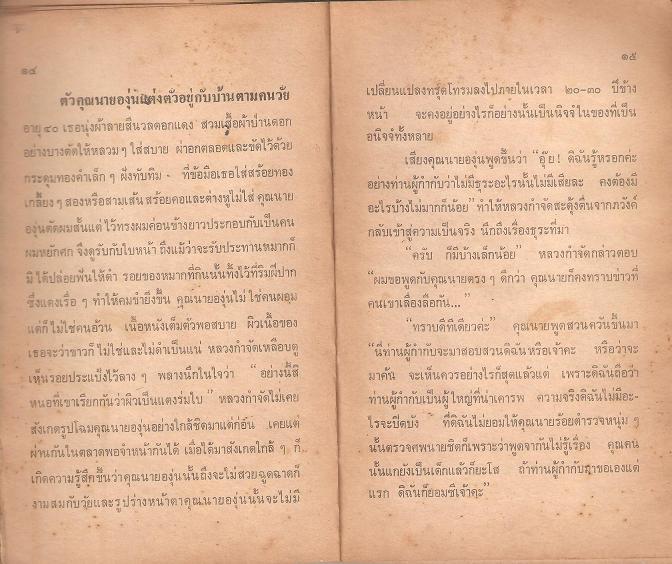 ๑๔
ตัวคุณนายองุ่นแต่งตัวอยู่กับบ้านตามคนวัย
อายุ ๔๐ เธอนุ่งผ้าลายสีนวลดอกแดง สวมเสื้อผ้าป่านดอก
อย่างบางตัดให้หลวม ๆ ใส่สบาย ผ่าอกตลอดและขัดไว้ด้วย
กระดุมทองคำเล็ก ๆ ฝังทับทิม ที่ข้อมือเธอใส่สร้อยทอง
เกลี้ยง ๆ สองหรือสามเส้น สร้อยคอและต่างหูไม่ใส่ คุณนาย
องุ่นตัดผมสั้นแต่ไว้ทรงผมค่อนข้างยาวประกอบกับเป็นคน
ผมหยักศก จึงดูรับกับใบหน้า ถึงแม้ว่าจะรับประทานหมากก็
มิได้ปล่อยฟันให้ดำ รอยของหมากที่กินนั้นทิ้งไว้ที่ริมฝีปาก
ซึ่งแดงเรื่อ ๆ ทำให้คมขำยิ่งขึ้น คุณนายองุ่นไม่ใช่คนผอม
แต่ก็ไม่ใช่คนอ้วน เนื้อหนังเต็มตัวพอสบาย ผิวเนื้อของ
เธอจะว่าขาวก็ไม่ใช่และไม่ดำเป็นแน่ หลวงกำจัดเหลือบดู
เห็นรอยประแป้งไว้ลาง ๆ พลางนึกในใจว่า "อย่างนี้สิ
หนอที่เขาเรียกกันว่าผิวเป็นแตงร่มใบ" หลวงกำจัดไม่เคย
สังเกตรูปโฉมคุณนายองุ่นอย่างใกล้ชิดมาแต่ก่อน เคยแต่
ผ่านกันในตลาดพอจำหน้ากันได้ เมื่อได้มาสังเกตใกล้ ๆ ก็
เกิดความรู้สึกขึ้นว่าคุณนายองุ่นนั้นถึงจะไม่สวยฉูดฉาดก็
งามสมกับวัยและรูปร่างหน้าตาคุณนายองุ่นนั้นจะไม่มี
๑๕
เปลี่ยนแปลงทรุดโทรมลงไปภายในเวลา ๒๐-๓๐ ปีข้าง
หน้า จะคงอยู่อย่างไรก็อย่างนั้นเป็นนิจจํในของที่เป็น
อนิจจํทั้งหลาย
เสียงคุณนายองุ่นพูดขึ้นว่า "อุ๊ย! ดิฉันรู้หรอกค่ะ
อย่างท่านผู้กำกับว่าไม่มีธุระอะไรนั้นไม่มีเสียละ คงต้องมี
อะไรบ้างไม่มากก็น้อย" ทำให้หลวงกำจัดสะดุ้งตื่นจากภวังค์
กลับเข้าสู่ความเป็นจริง นึกถึงเรื่องธุระที่มา
"ครับ ก็มีบ้างเล็กน้อย" หลวงกำจัดกล่าวตอบ
"ผมขอพูดกับคุณนายตรง ๆ ดีกว่า คุณนายก็คงทราบข่าวที่
คนเขาเลื่องลือกัน..."
"ทราบดีทีเดียวค่ะ" คุณนายพูดสวนควันขึ้นมา
"นี่ท่านผู้กำกับจะมาสอบสวนดิฉันหรือเจ้าคะ หรือว่าจะ
มาค้น จะเห็นควรอย่างไรก็สุดแล้วแต่ เพราะดิฉันถือว่า
ท่านผู้กำกับเป็นผู้ใหญ่ที่น่าเคารพ ความจริงดิฉันไม่มีอะ-
ไรจะปิดบัง ที่ดิฉันไม่ยอมให้คุณนายร้อยตำรวจหนุ่ม ๆ
นั้นตรวจศพนายชิดก็เพราะว่าพูดจากันไม่รู้เรื่อง คุณคน
นั้นแกยังเป็นเด็กแล้วก็ยะโส ถ้าท่านผู้กำกับมาขอเองแต่
แรก ดิฉันก็ยอมซีเจ้าคะ"